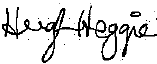 Hugh Heggie